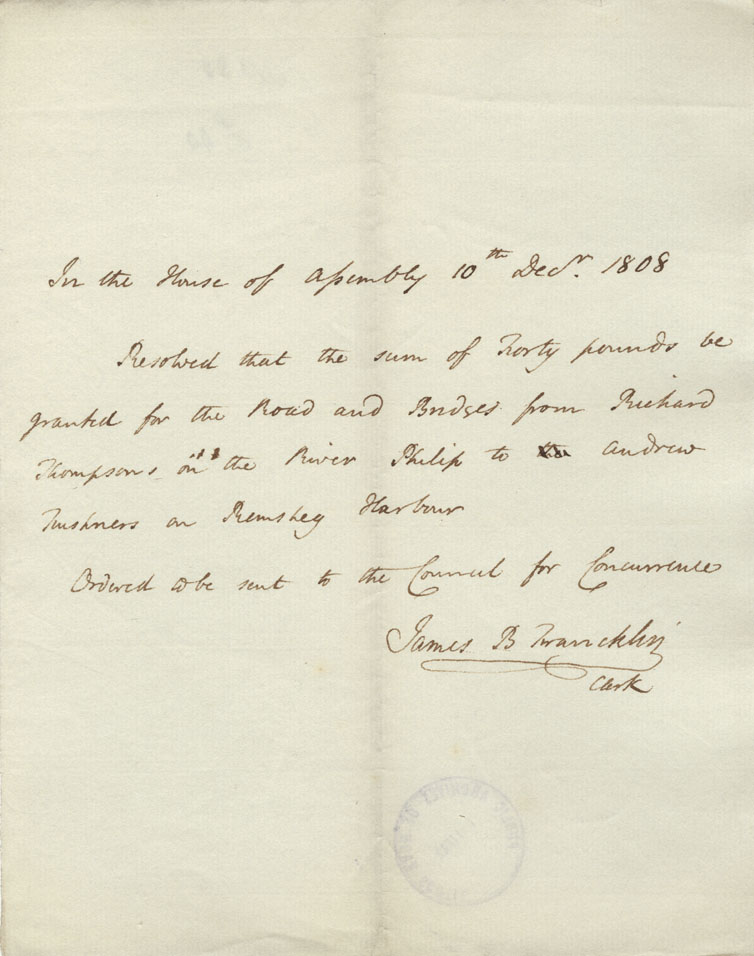 In the House of Assembly 10th Decr. 1808
Resolved that the sum of Forty pounds be
granted for the Road and Bridges from Richard
Thompsons on the River Philip to Andrew
on Remsheg Harbour
Ordered to be sent to the Council for Concurrence
James B Francklin
Clerk